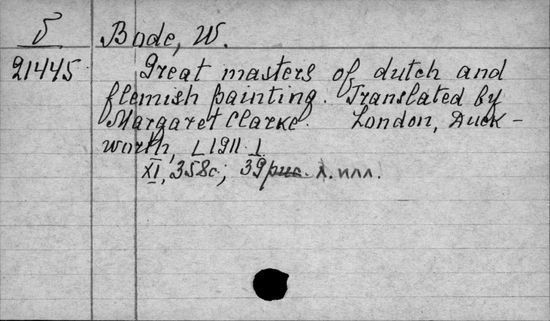 Б Bode, W.
21445 Great masters of dutch and
flemish painting. Translated by
Margaret Clarke. London, Duck-
worth, [1911].
XI, 358с.; 39 рис. л. илл.